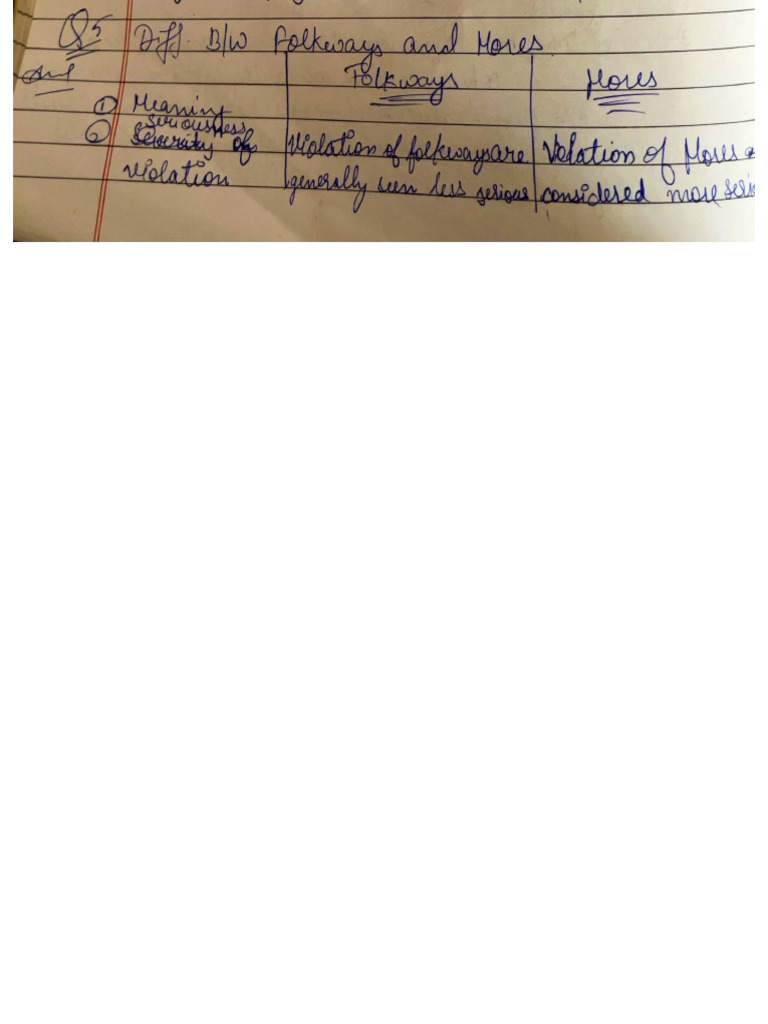 Q5 Diff. B/W Folkways and Mores.
Ans Folkways Mores
① Meaning
seriousness
② Severity of Violation of folkways are Violation of Mores
violation generally seen less serious considered more serio